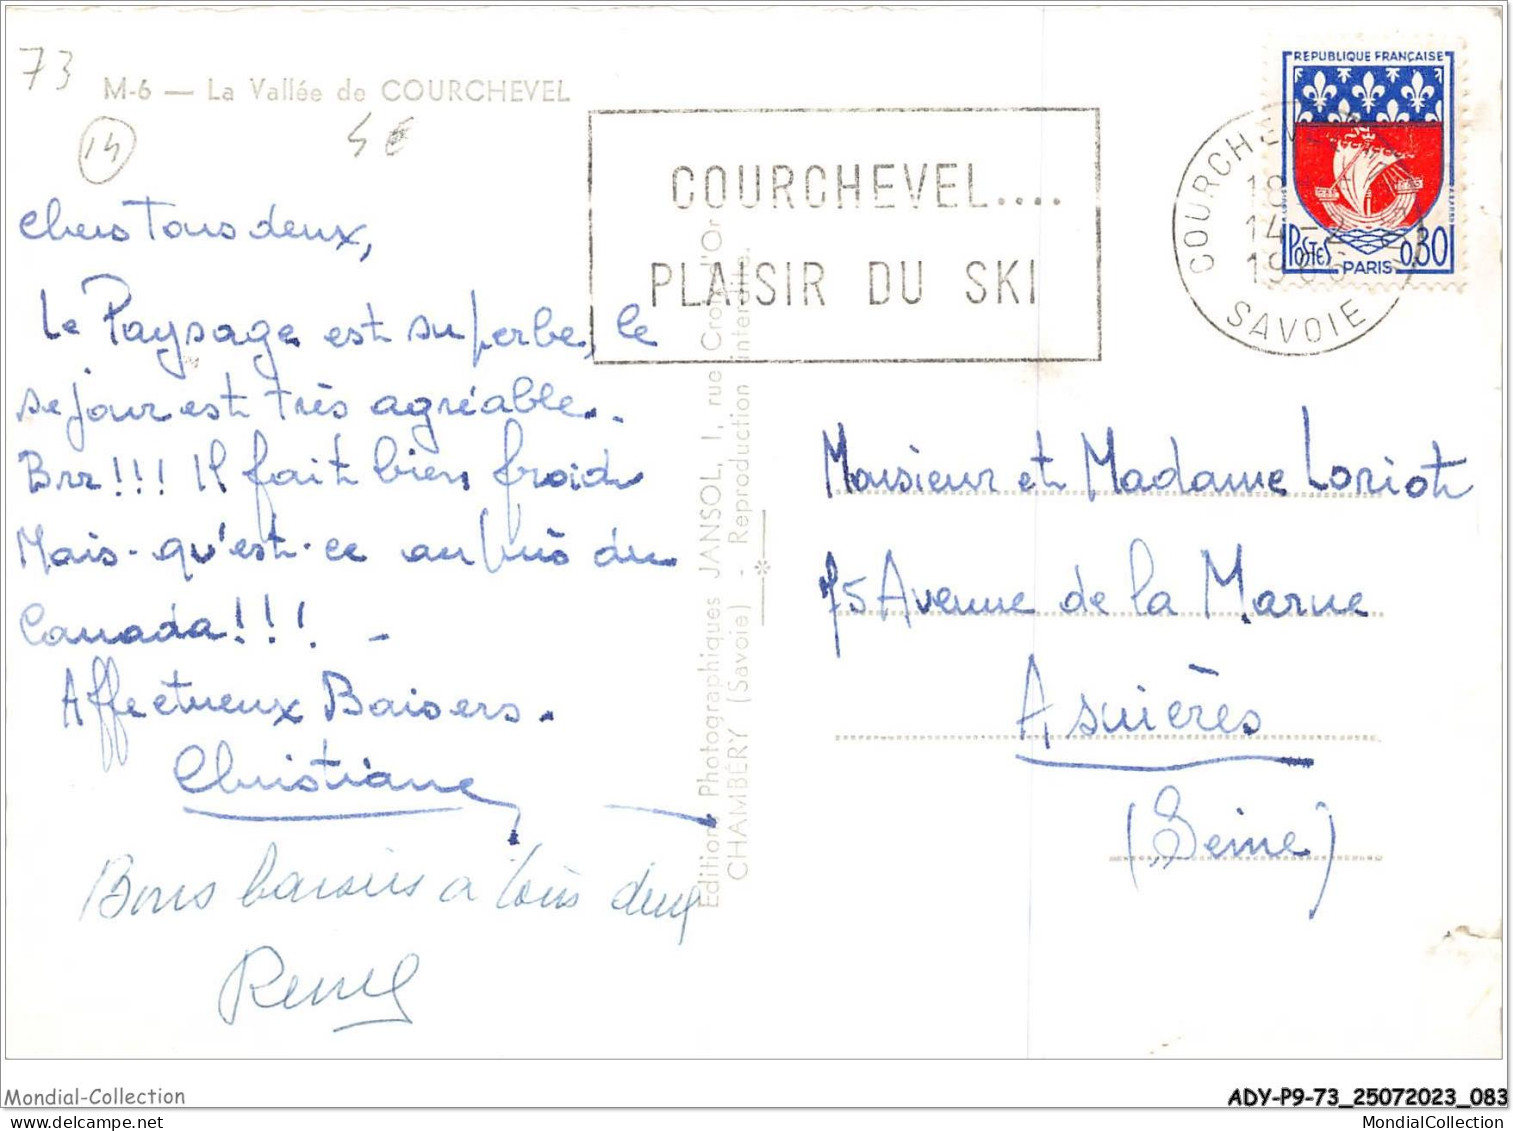 73
M-6 — La Vallée de COURCHEVEL
14
Chers Tous deux,
Le Paysage est superbe, le
sejour est très agréable..
Brr!!! Il fait bien froid
Mais-qu'est-ce auprès du
Canada!!! -
Affectueux Baisers.
Christiane
Bons baisers a tous deux
Remy
Edition Photographiques JANSOL, 1, rue Croix d'Or
CHAMBÉRY (Savoie) - Reproduction interdite.
COURCHEVEL....
PLAISIR DU SKI
COURCHEVEL
18
14-4
1966
SAVOIE
REPUBLIQUE FRANÇAISE
POSTES PARIS 0,30
Monsieur et Madame Loriot
75 Avenue de la Marne
Asnières
(Seine)
Mondial-Collection
ADY-P9-73_25072023_083
MondialCollection